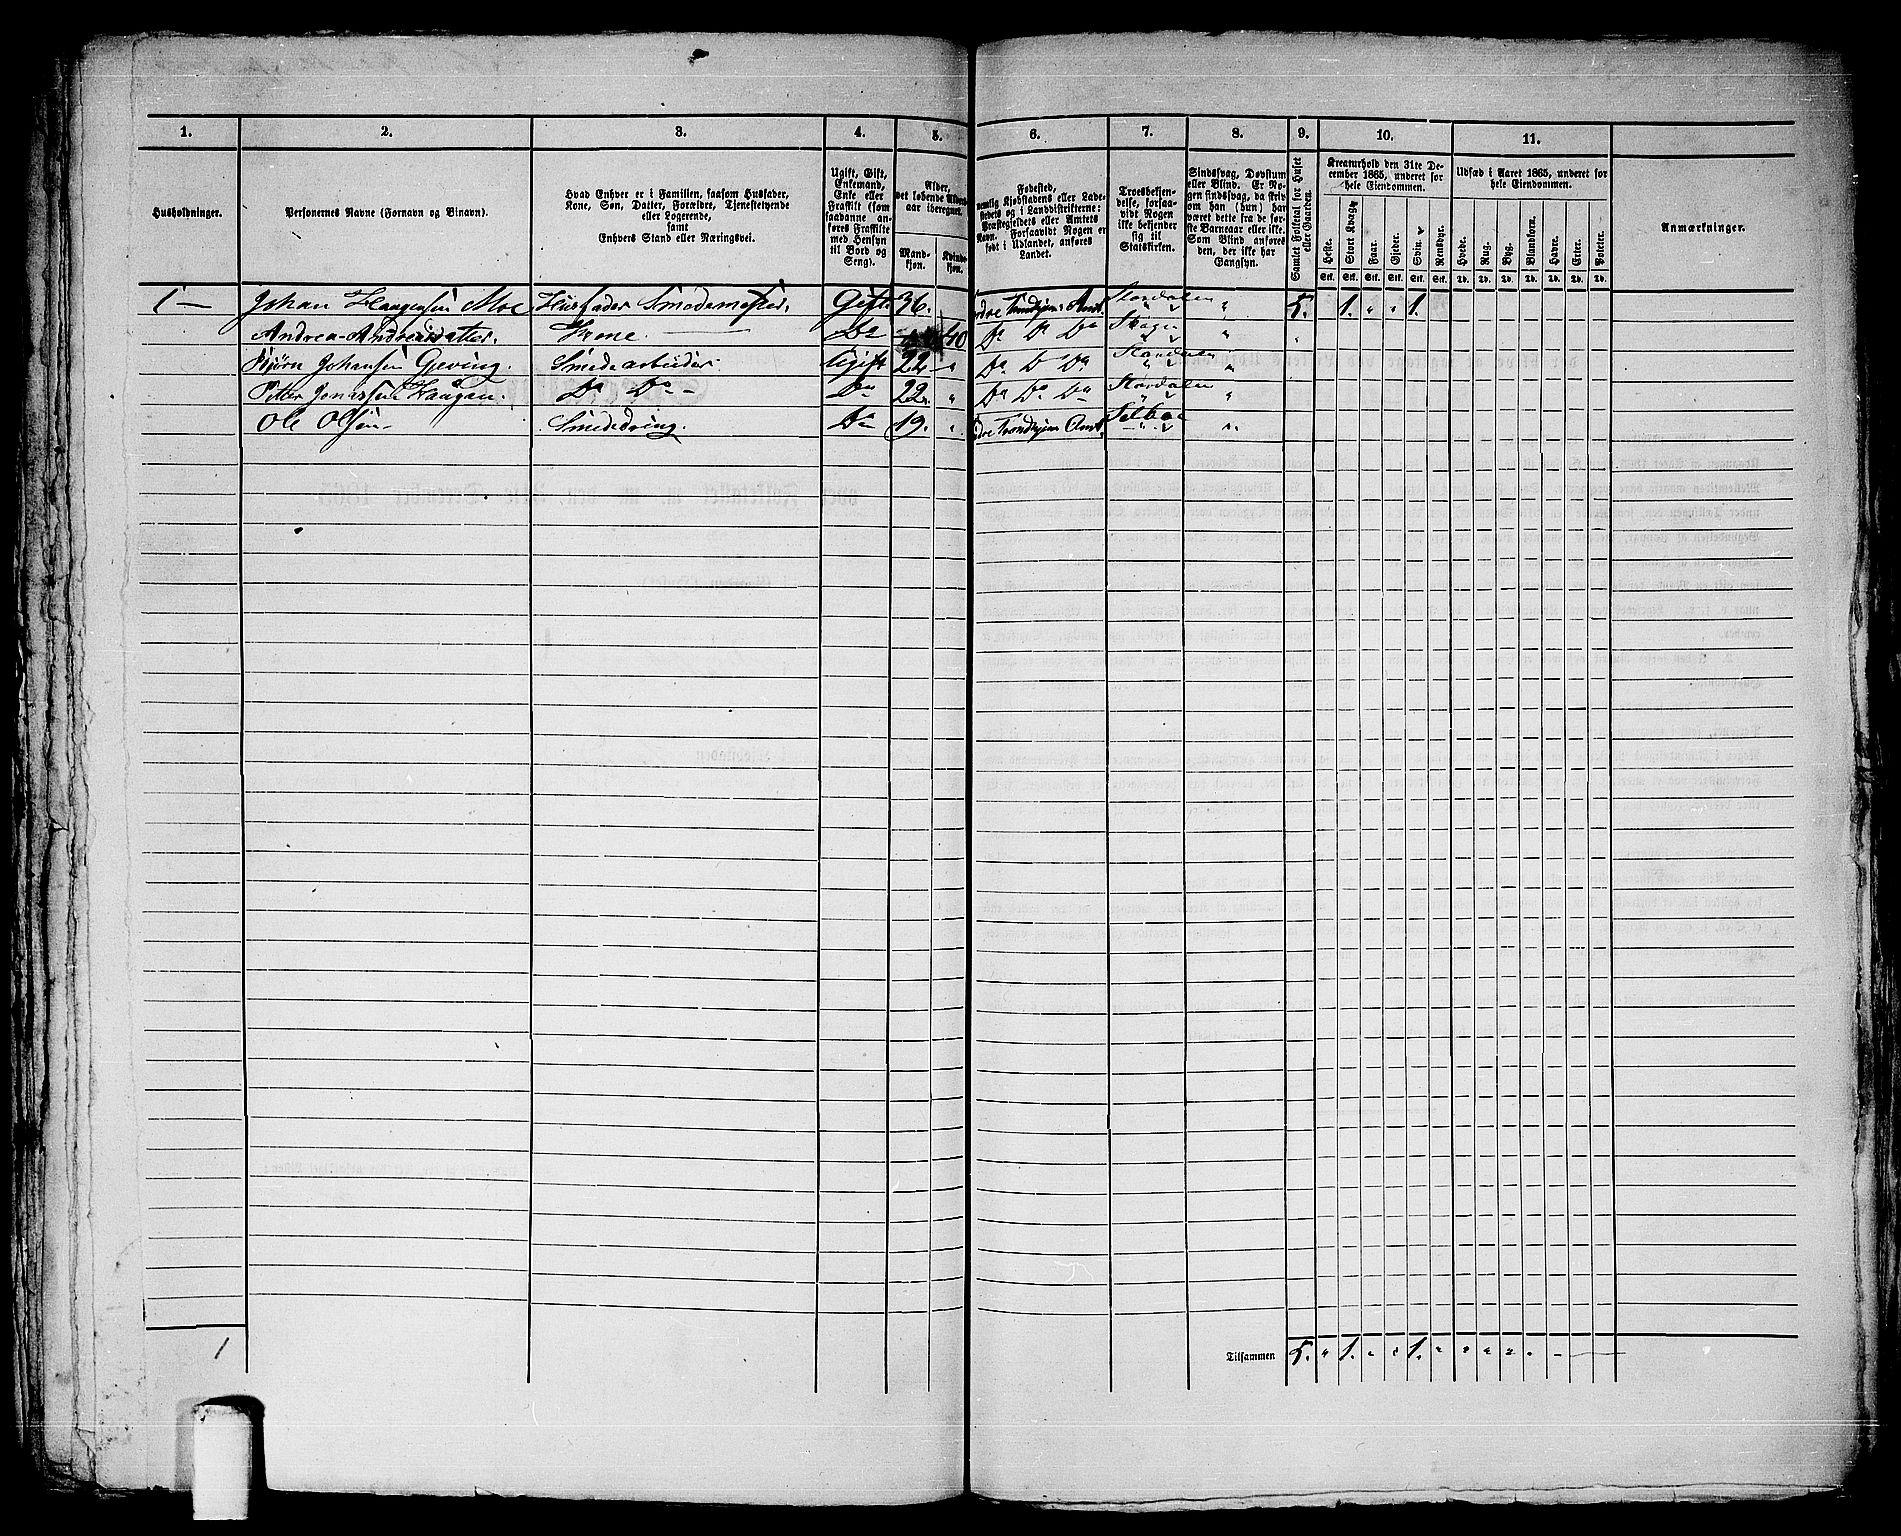 1. 2. 3. 4. 5. 6. 7. 8. 9. 10. 11.
Husholdninger.
Personernes Navne (Fornavn og Binavn).
Hvad Enhver er i Familien, saasom Husfader,
Kone, Søn, Datter, Forældre, Tjenestetyende
eller Logerende,
samt
Enhvers Stand eller Næringsvei.
Ugift, Gift,
Enkemand,
Enke eller
Fraskilt (som
saadanne an-
føres Fraskilte
med Hensyn
til Bord og
Seng).
Alder,
det løbende Alders-
aar iberegnet.
Mand-
kjøn.
Kvinde-
kjøn.
Fødested,
nemlig Kjøbstadens eller Lade-
stedets og i Landdistrikterne:
Præstegjeldets eller Amtets
Navn. Forsaavidt Nogen er
født i Udlandet, anføres
Landet.
Troesbekjen-
delse, forsaa-
vidt Nogen
ikke bekjender
sig til
Statskirken.
Sindssvag, Døvstum
eller Blind. Er No-
gen sindssvag, da skriv
om han (hun) har
været dette fra de før-
ste Barneaar eller ikke.
Som Blind anføres
den, der ikke har
Gangsyn.
Samlet Folketal for Huset
eller Gaarden.
Kreaturhold den 31te De-
cember 1865, underet for
hele Eiendommen.
Heste. Stort Kvæg. Faar. Gjeder. Svin. Rensdyr.
Stk. Stk. Stk. Stk. Stk. Stk.
Udsæd i Aaret 1865, underet for
hele Eiendommen.
Hvede. Rug. Byg. Blandkorn. Havre. Erter. Poteter.
Td. Td. Td. Td. Td. Td. Td.
Anmærkninger.
1 — Johan Haagensen Moe Husfader Smedemester. Gift 36. Trondhjems Amt. Stordalen " 5. 1. " " 1.
Andrea Andreasdatter. Kone — Do 40 Do Do Do Skogn "
Bjørn Johansen Geving. Smedearbeider Ugift 22 " Do Do Do Stordalen "
Petter Haagen. Do Do — Do 22. " Do Do Do Stordalen "
Ole Olsen — Smededreng. Do 19. " Trondhjems Amt. Selboe "
1
Tilsammen 5. " 1. " " 1. " " " " " —